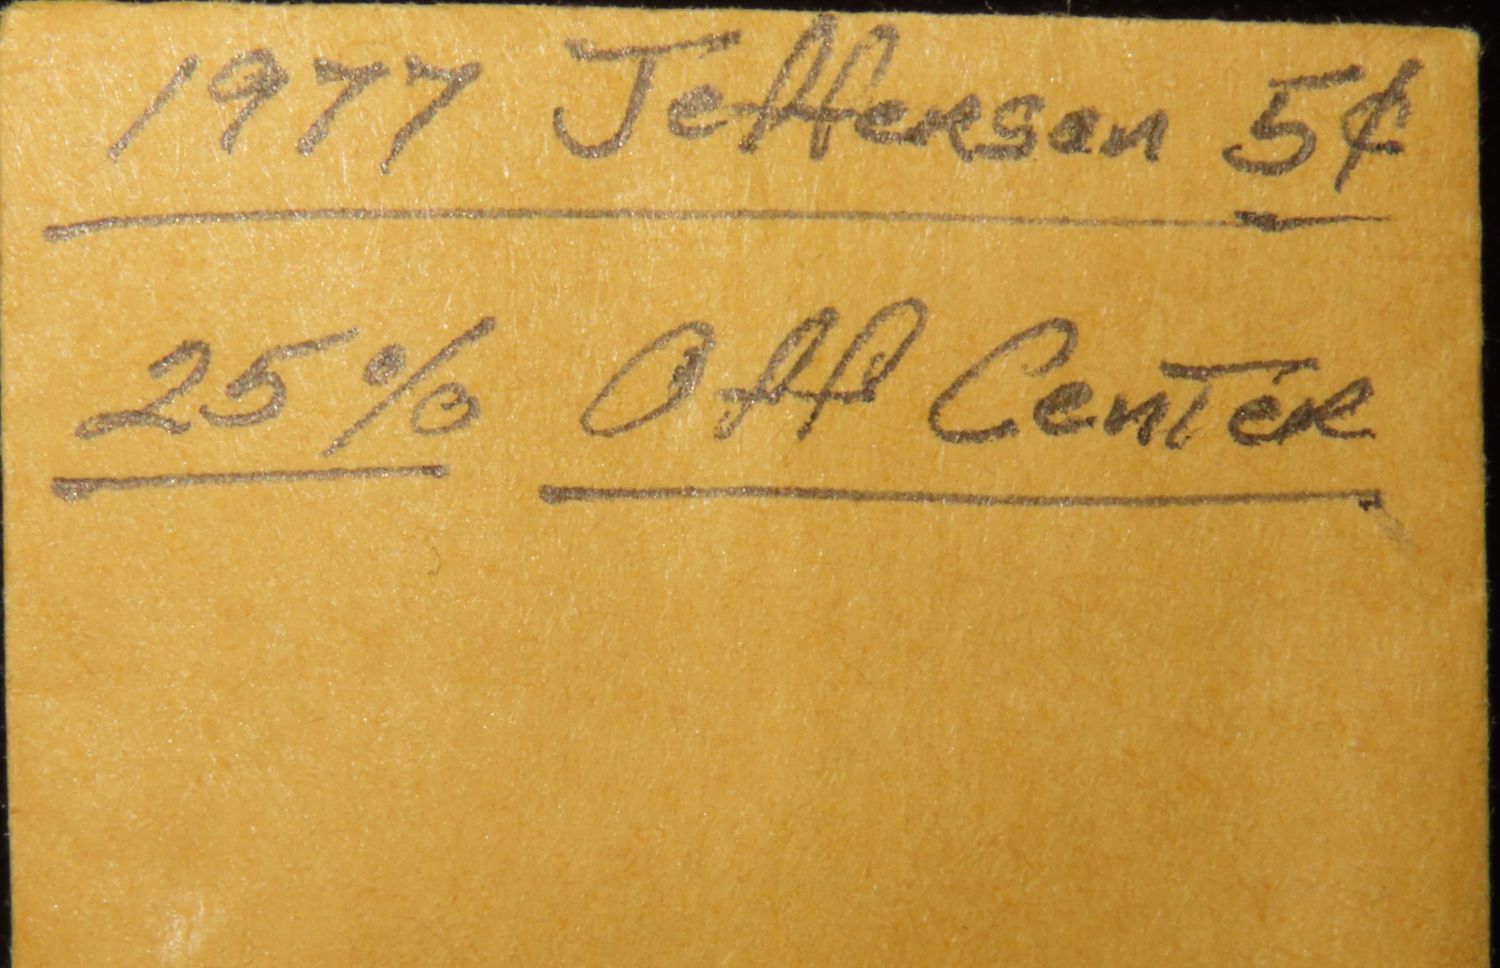 1977 Jefferson 5¢
25% Off Center